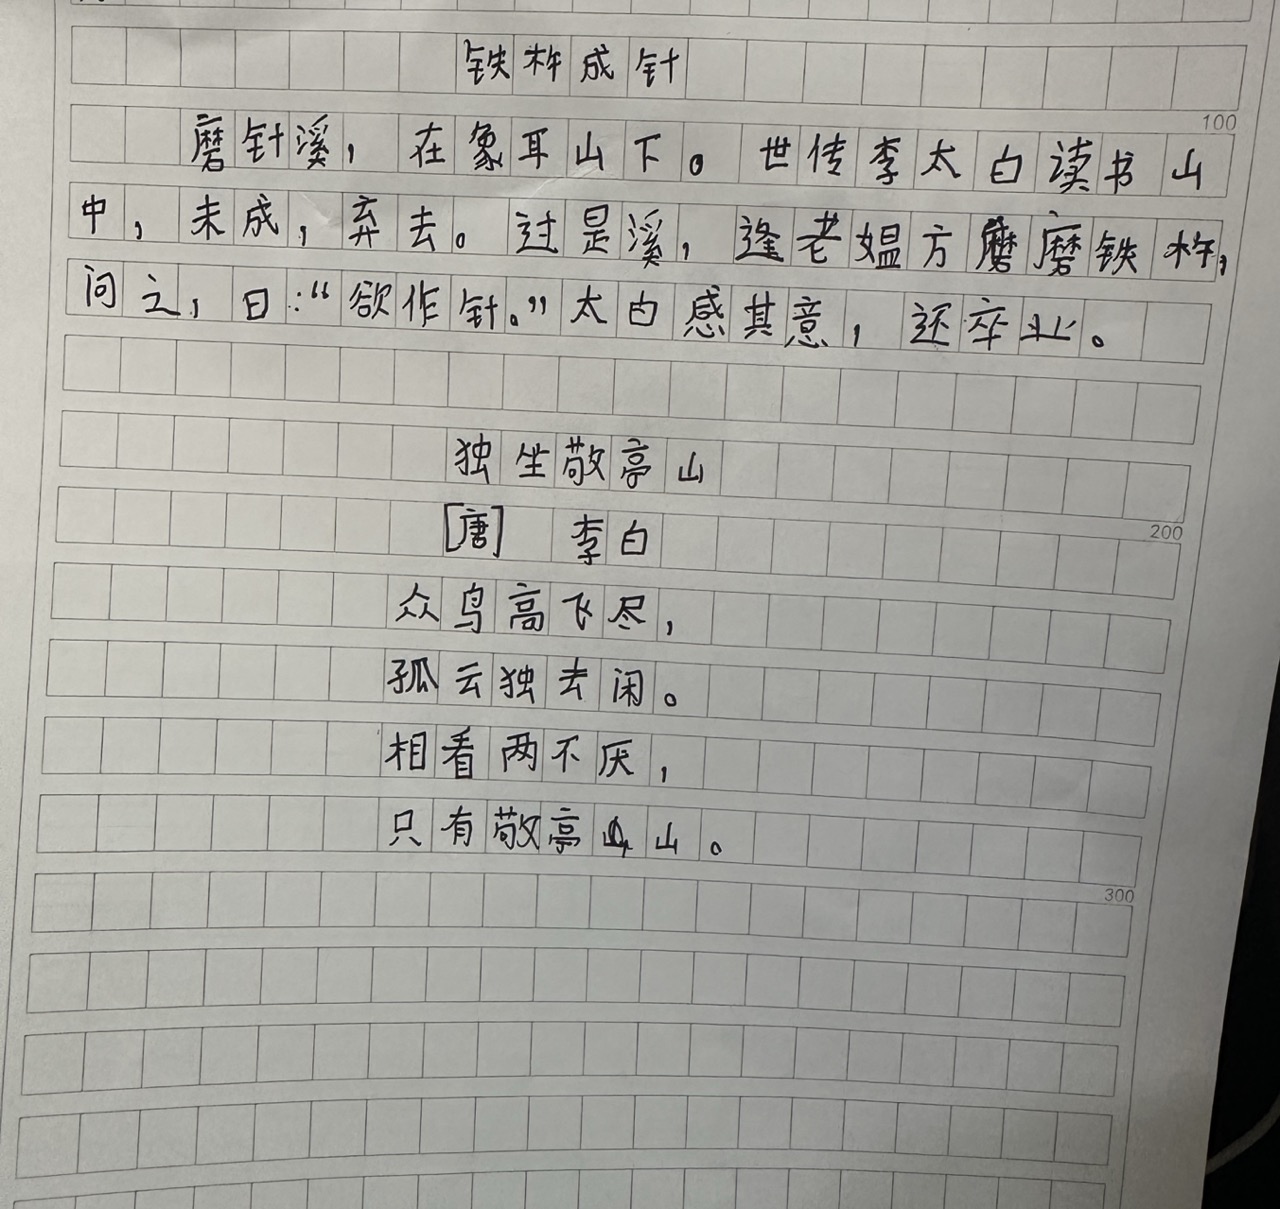 铁杵成针
100
磨针溪，在象耳山下。世传李太白读书山
中，未成，弃去。过是溪，逢老媪方磨铁杵，
问之，曰：“欲作针。”太白感其意，还卒业。
独坐敬亭山
[唐] 李白
200
众鸟高飞尽，
孤云独去闲。
相看两不厌，
只有敬亭山。
300